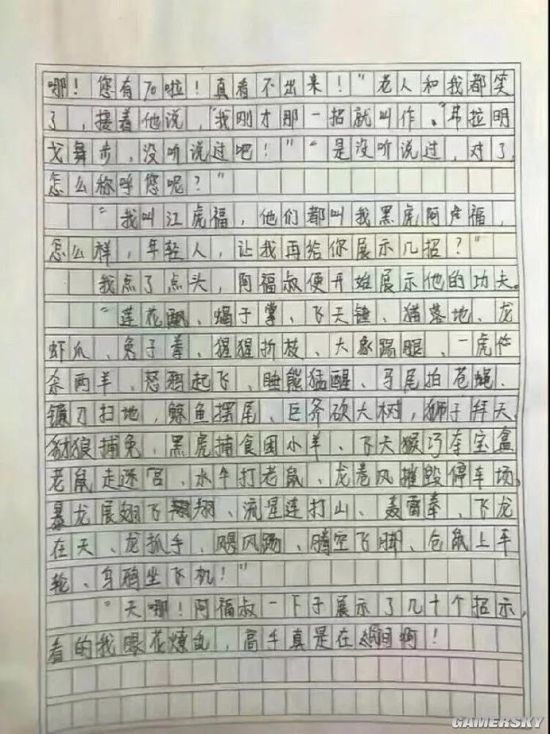 哪！您有70啦！真看不出来！”老人和我都笑
了，接着他说，“我刚才那一招就叫作，韦拉明
戈舞步，没听说过吧！”“是没听说过，对了，
怎么称呼您呢？”
“我叫江虎福，他们都叫我黑虎阿虎福，
怎么样，年轻人，让我再给你展示几招？”
我点了点头，阿福叔便开始展示他的功夫。
“莲花飘、蝎子掌、飞天锤、猫落地、龙
虾爪、兔子拳、猩猩折枝、大象踢腿、一虎
杀两羊、怒鸦起飞、睡熊猛醒、马尾拍苍蝇、
镰刀扫地、鲸鱼摆尾、巨斧砍大树，狮子拜天
豺狼捕兔、黑虎捕食困小羊、飞天猴巧夺宝盒
老鼠走迷宫、水牛打老鼠、龙卷风摧毁停车场、
暴龙展翅飞翔、流星连打山、轰雷拳、飞龙
在天、龙抓手、飓风踢、腾空飞脚、仓鼠上车
轮、乌鸦坐飞机！”
“天哪！阿福叔一下子展示了几十个招示，
看的我眼花燎乱，高手真是在间啊！
GAMERSKY